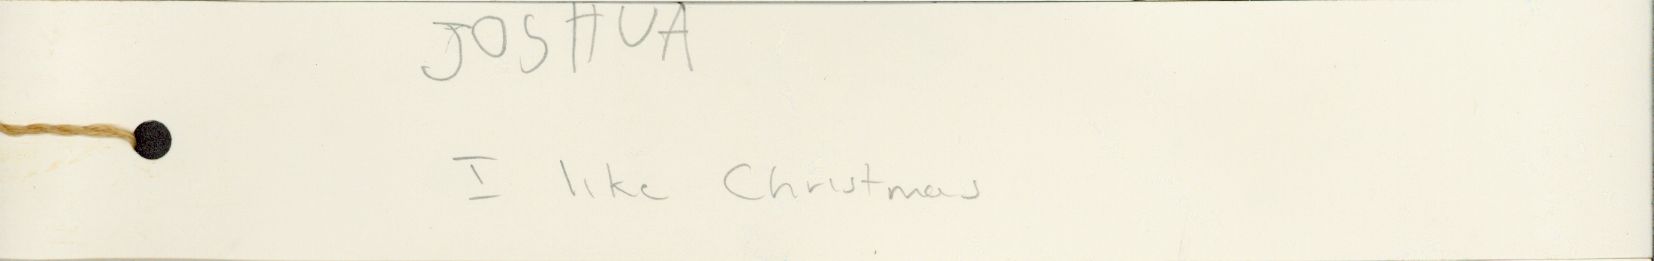 JOSHUA
I like Christmas